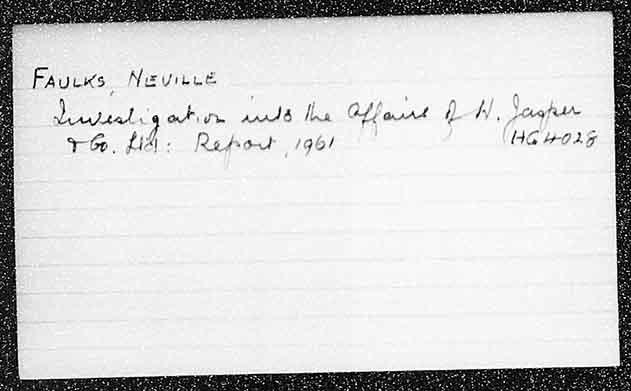 FAULKS, NEVILLE
Investigation into the Affairs of H. Jasper
& Co. Ltd: Report, 1961 HG4028